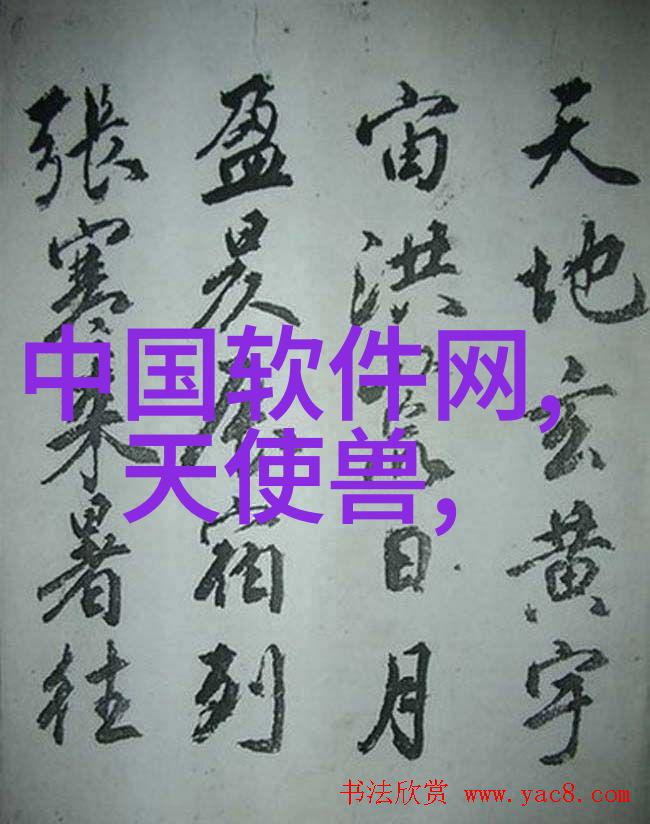 天地玄黄宇
宙洪日月
盈昃宿列
張寒来暑往
中国软件网,
天使兽,
书法欣赏 www.yac8.com